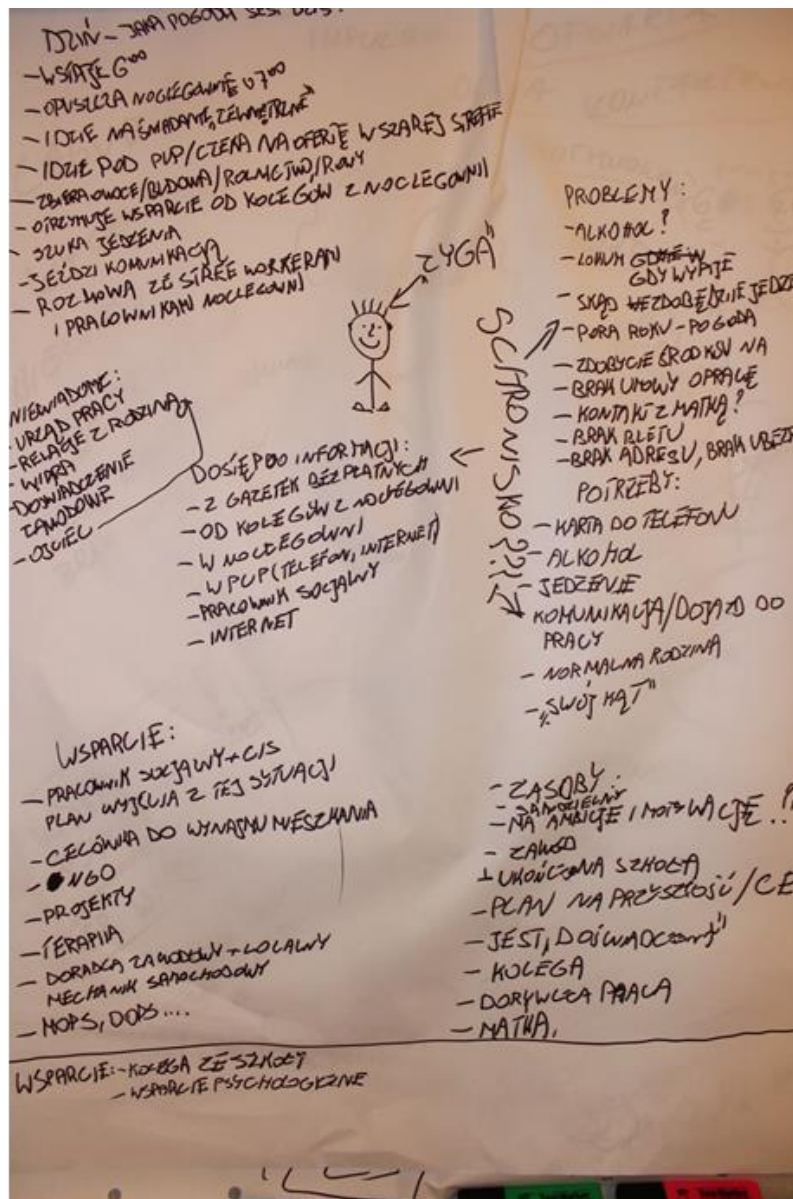 DZIŃ - JAKA POGODA JEST DZIŚ?
- WSTAJE 6⁰⁰
- OPUSZCZA NOCLEGOWNIĘ O 7⁰⁰
- IDZIE NA ŚNIADANIE „ZEWNĘTRZNE”
- IDZIE POD PUP/CZEKA NA OFERTĘ W SZAREJ STREFIE
- ZBIERA OWOCE/BUDOWA/ROLNICTWO/ROWY
- OTRZYMUJE WSPARCIE OD KOLEGÓW Z NOCLEGOWNI
- SZUKA JEDZENIA
- JEŹDZI KOMUNIKACJĄ
- ROZMOWA ZE STREET WORKERAMI
I PRACOWNIKAMI NOCLEGOWNI
„ZYGA”
NIEWIADOME:
- URZĄD PRACY
- RELACJE Z RODZINĄ
- WIARA
- DOŚWIADCZENIE
ZAWODOWE
- OJCIEC
DOSTĘP DO INFORMACJI:
- Z GAZETEK BEZPŁATNYCH
- OD KOLEGÓW Z NOCLEGOWNI
- W NOCLEGOWNI
- W PUP (TELEFON, INTERNET)
- PRACOWNIK SOCJALNY
- INTERNET
SCHRONISKO???!
PROBLEMY:
- ALKOHOL?
- LOKUM GDZIE W
GDY WYPIJE
- SKĄD WEZDOBĘDZIE JEDZE
- PORA ROKU - POGODA
- ZDOBYCIE ŚRODKÓW NA
- BRAK UMOWY O PRACĘ
- KONTAKT Z MATKĄ?
- BRAK BILETU
- BRAK ADRESU, BRAK UBEZP
POTRZEBY:
- KARTA DO TELEFONU
- ALKOHOL
- JEDZENIE
KOMUNIKACJA/DOJAZD DO
PRACY
- NORMALNA RODZINA
- „SWÓJ KĄT”
WSPARCIE:
- PRACOWNIK SOCJALNY + CIS
PLAN WYJŚCIA Z TEJ SYTUACJI
- CELÓWKA DO WYNAJMU MIESZKANIA
- NGO
- PROJEKTY
- TERAPIA
- DORADCA ZAWODOWY + LOKALNY
MECHANIK SAMOCHODOWY
- MOPS, DOPS....
- ZASOBY:
- SAMODZIELNY
- MA AMBICJE I MOTYWACJĘ...!
- ZAWÓD
- UKOŃCZONA SZKOŁA
- PLAN NA PRZYSZŁOŚĆ/CE
- JEST „DOŚWIADCZONY”
- KOLEGA
- DORYWCZA PRACA
- MATKA.
WSPARCIE: - KOLEGA ZE SZKOŁY
- WSPARCIE PSYCHOLOGICZNE